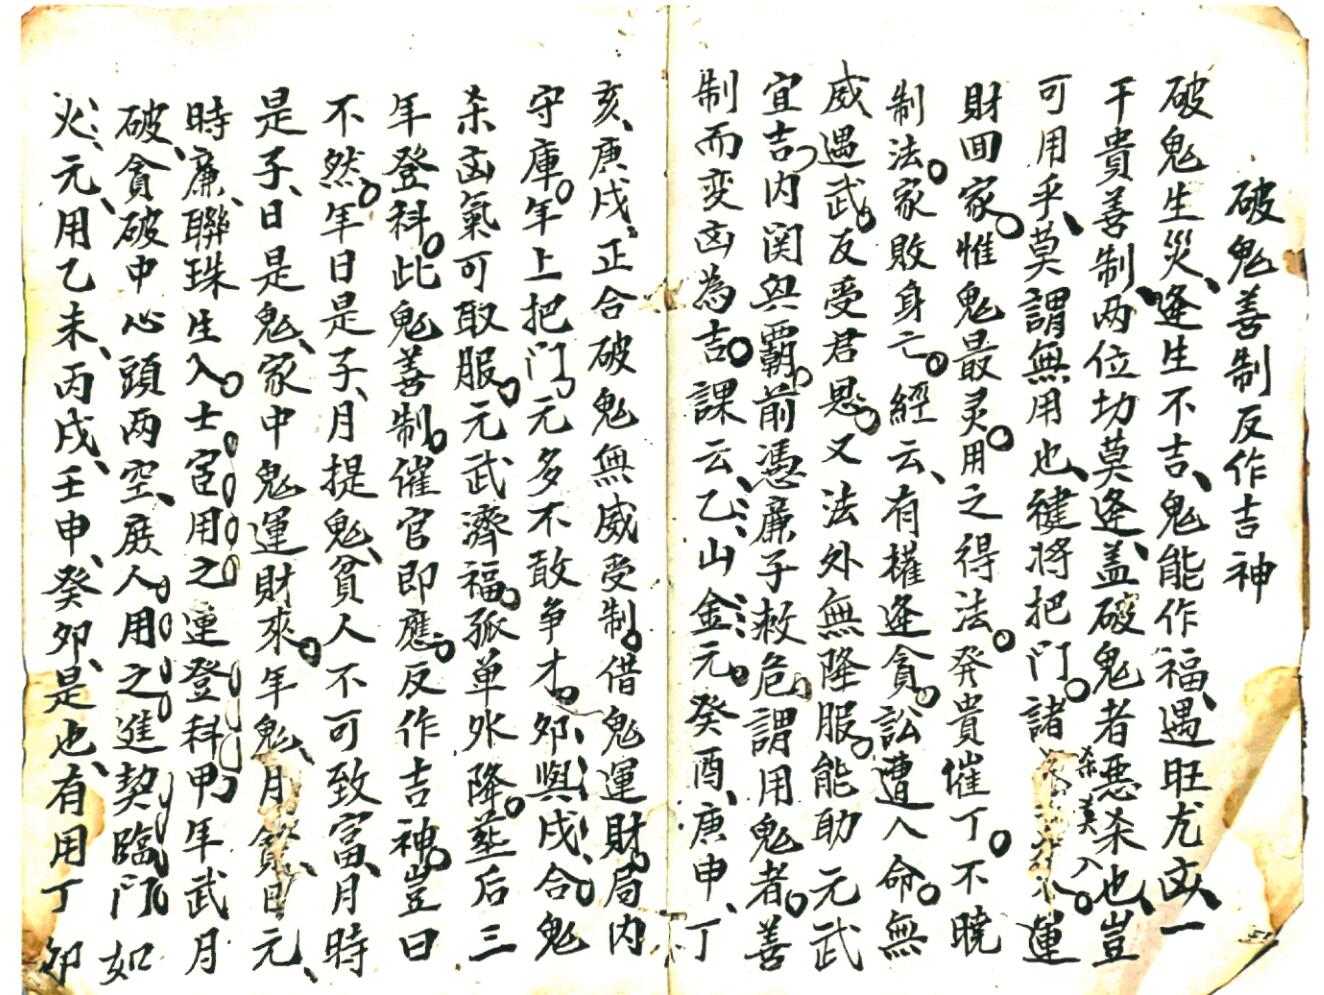 破鬼善制反作吉神
破鬼生災、逢生不吉、鬼能作福、遇旺尤凶、一
干貴善制、两位切莫逢、盖破鬼者惡杀也、豈
可用乎、莫謂無用也、键将把门。諸杀莫入。運
財回家。惟鬼最灵。用之得法。癸貴催丁。不曉
制法。家敗身亡。經云、有權逢貪。訟遭人命。無
威遇武。反受君恩。又法外無降服。能助元武
宜吉。内関與覇。前憑廉子救危。謂用鬼者。善
制而变凶為吉。課云、乙山金元。癸酉、庚申、丁
亥、庚戌。正合破鬼無威受制。借鬼運財。局内
守庫。年上把门。元多不敢争才。夘與戌合鬼
杀凶氣可取服。元武濟福。孤单外降。塟后三
年登科。此鬼善制。催官即應。反作吉神。豈曰
不然。年日是子、月提鬼、貧人不可致富、月時
是子、日是鬼、家中鬼運財來。年鬼、月貪日元、
時廉、聯珠生入。士宦用之連登科甲、年武月
破、貪破中心頭两空、庶人用之進契臨门 如
火、元用乙未、丙戌、壬申、癸夘、是也、有用丁夘